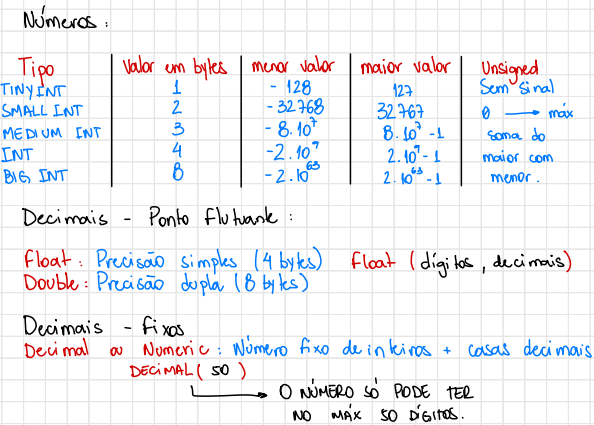 Números:
Tipo | Valor em bytes | menor valor | maior valor | Unsigned
TINYINT | 1 | -128 | 127 | Sem sinal
SMALL INT | 2 | -32768 | 32767 | 0 → máx
MEDIUM INT | 3 | -8.10⁷ | 8.10⁷-1 | soma do
INT | 4 | -2.10⁹ | 2.10⁹-1 | maior com
BIG INT | 8 | -2.10⁶³ | 2.10⁶³-1 | menor.
Decimais - Ponto Flutuante:
Float: Precisão simples (4 bytes) Float (dígitos, decimais)
Double: Precisão dupla (8 bytes)
Decimais - fixos
Decimal ou Numeric: Número fixo de inteiros + casas decimais
DECIMAL(50)
→ O NÚMERO SÓ PODE TER
NO MÁX 50 DÍGITOS.